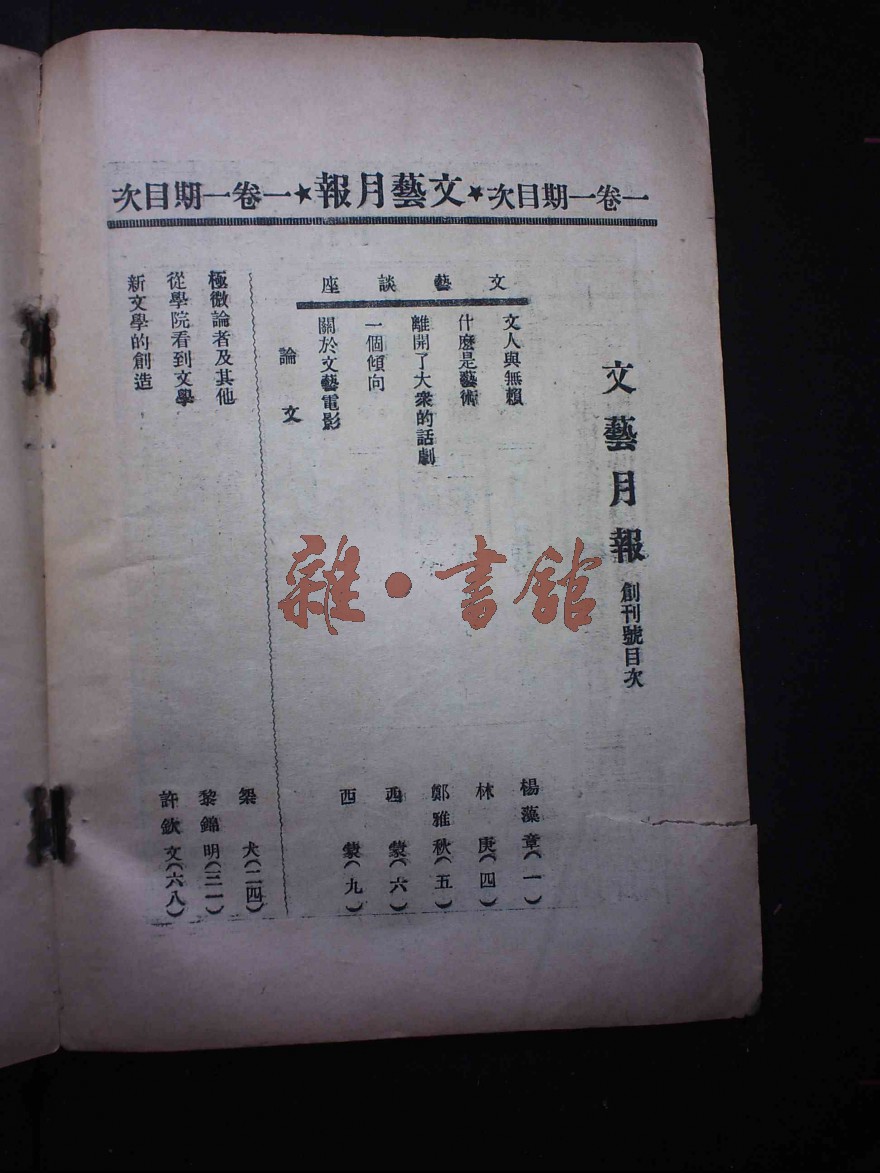 一卷一期目次★文藝月報★一卷一期目次
文藝月報 創刊號目次
文藝談座
文人與無賴 楊藻章(一)
什麼是藝術 林庚(四)
離開了大衆的話劇 鄭雅秋(五)
一個傾向 西蒙(六)
關於文藝電影 西蒙(九)
論文
極微論者及其他 犬(二四)
從學院看到文學 黎錦明(三一)
新文學的創造 許欽文(六八)
雜·書館